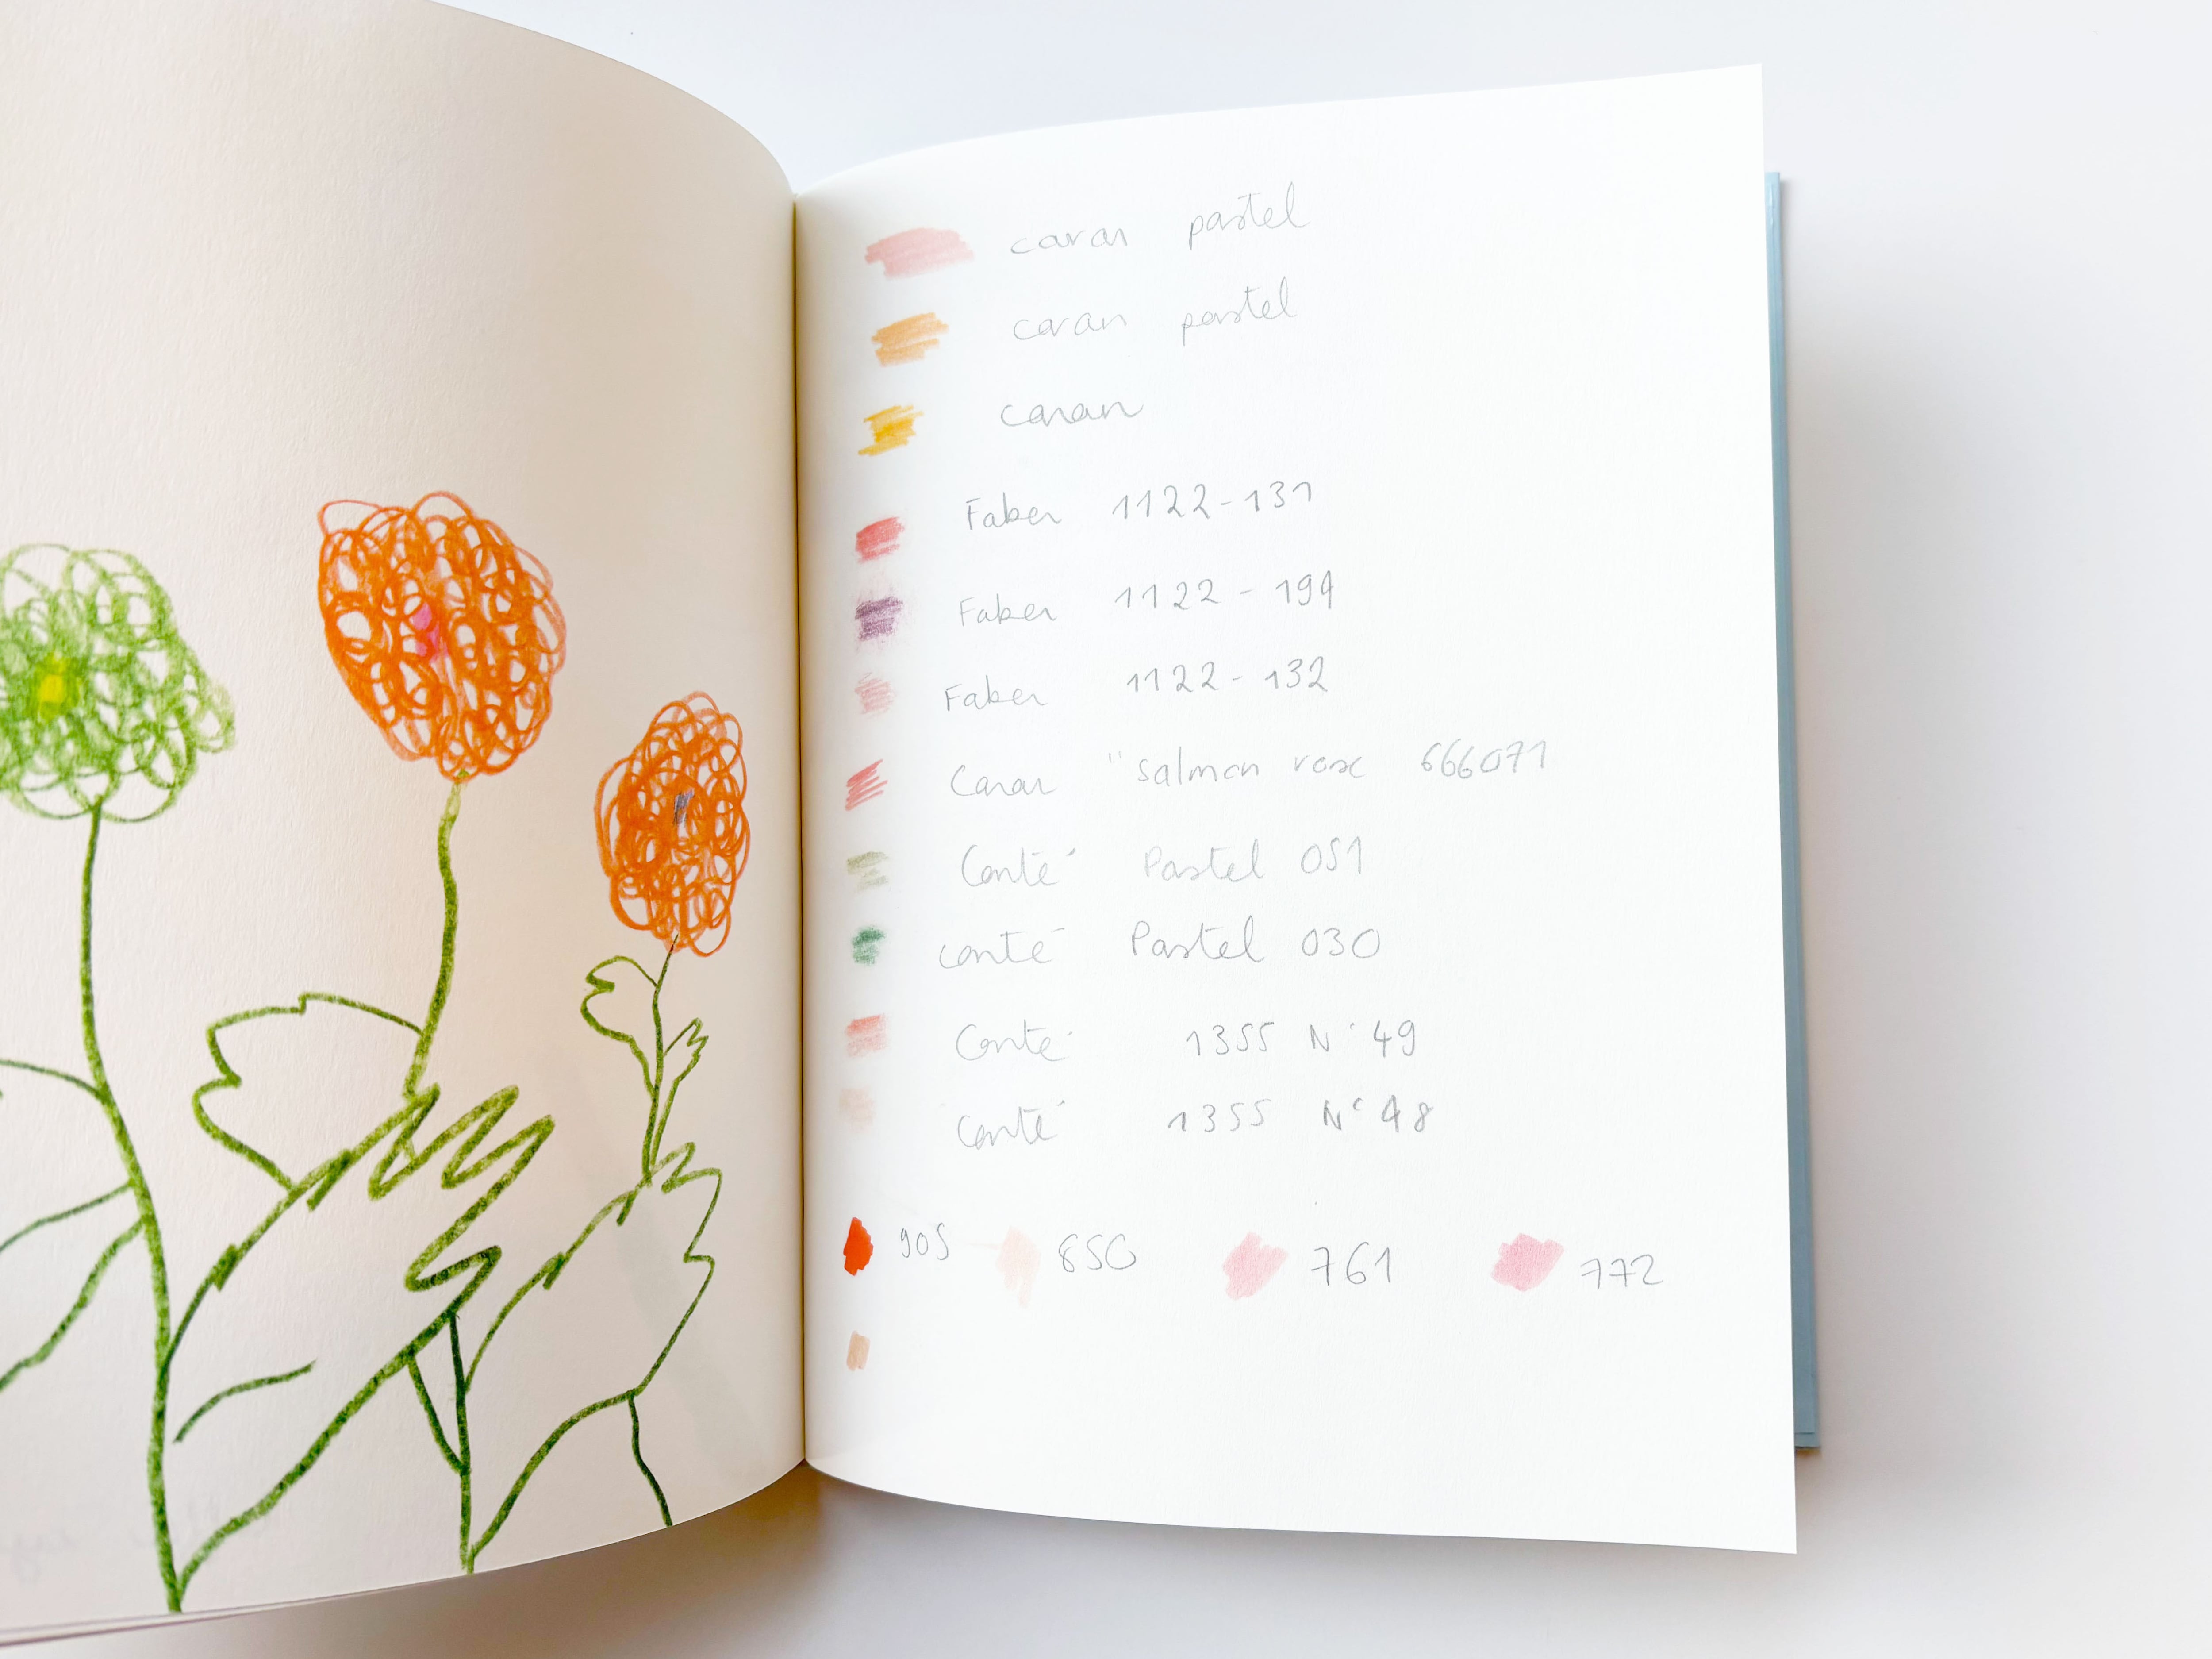 caran pastel
caran pastel
caran
Faber 1122-131
Faber 1122-194
Faber 1122-132
Caran "salmon rose 666071
Conté Pastel 051
conté Pastel 030
Conté 1355 N°49
Conté 1355 N°48
905 850 761 772